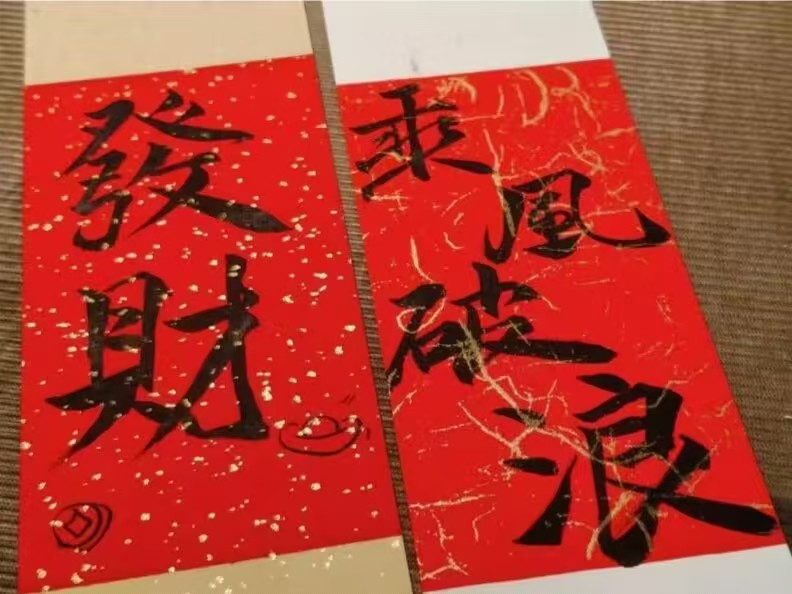 發財
乘風破浪